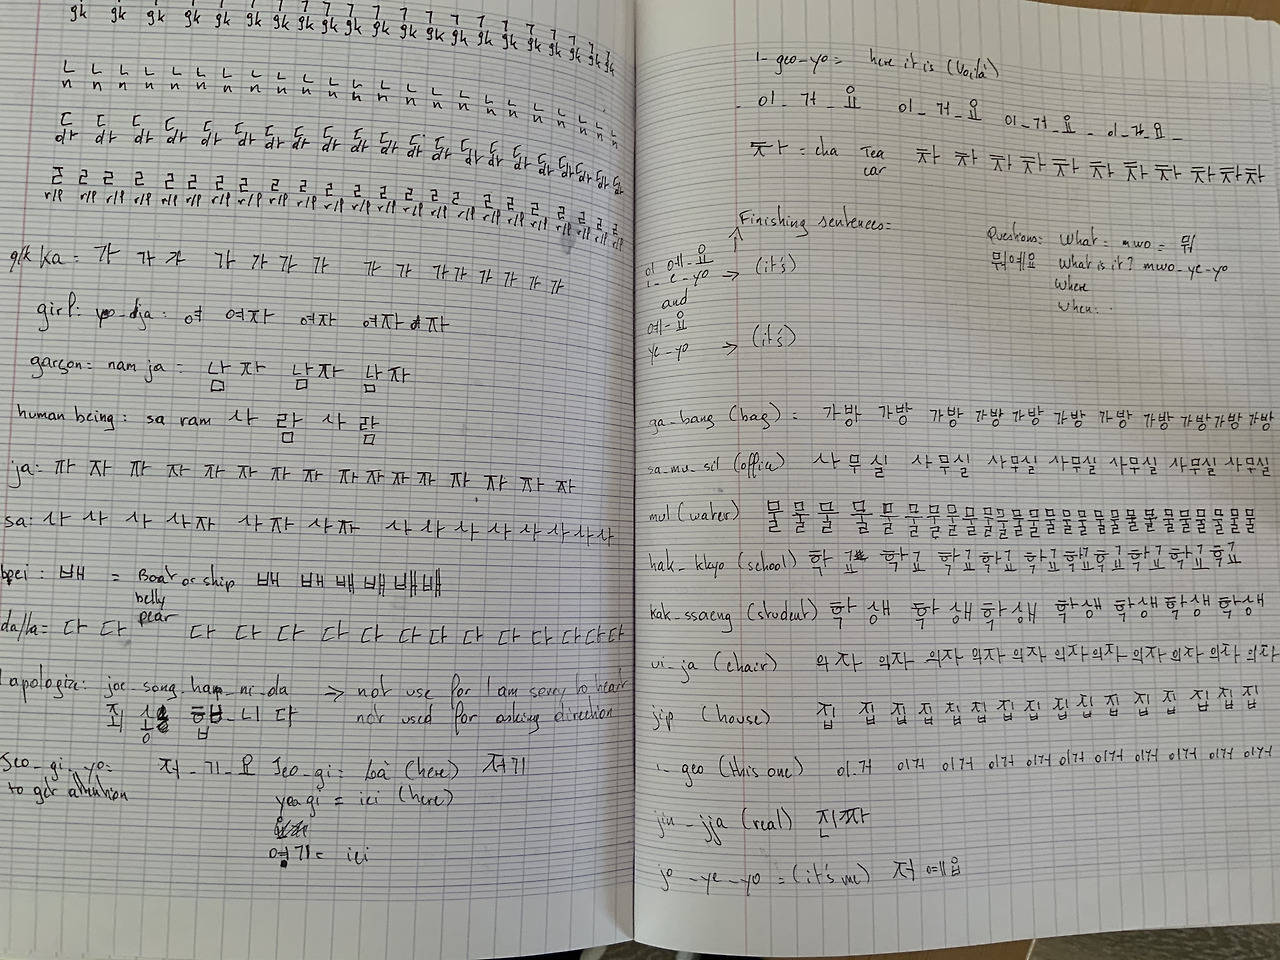 ㄱ ㄱ ㄱ ㄱ ㄱ ㄱ ㄱ ㄱ ㄱ ㄱ ㄱ ㄱ ㄱ ㄱ ㄱ ㄱ ㄱ ㄱ
gk gk gk gk gk gk gk gk gk gk gk gk gk gk gk gk gk gk
ㄴ ㄴ ㄴ ㄴ ㄴ ㄴ ㄴ ㄴ ㄴ ㄴ ㄴ ㄴ ㄴ ㄴ ㄴ ㄴ ㄴ ㄴ ㄴ ㄴ ㄴ
n n n n n n n n n n n n n n n n n n n n n
ㄷ ㄷ ㄷ ㄷ ㄷ ㄷ ㄷ ㄷ ㄷ ㄷ ㄷ ㄷ ㄷ ㄷ ㄷ ㄷ ㄷ ㄷ ㄷ
dt dt dt dt dt dt dt dt dt dt dt dt dt dt dt dt dt dt dt
ㄹ ㄹ ㄹ ㄹ ㄹ ㄹ ㄹ ㄹ ㄹ ㄹ ㄹ ㄹ ㄹ ㄹ ㄹ ㄹ ㄹ ㄹ ㄹ ㄹ
r/l r/l r/l r/l r/l r/l r/l r/l r/l r/l r/l r/l r/l r/l r/l r/l r/l r/l r/l r/l
g/k ka = 가 가 가 가 가 가 가 가 가 가 가 가 가 가 가
girl: yo-dja: 여 여자 여자 여자 여자
garçon = nam ja = 남자 남자 남자
human being: sa ram 사 람 사 람
ja: 자 자 자 자 자 자 자 자 자 자 자 자 자 자 자
sa: 사 사 사 사자 사자 사자 사 사 사 사 사 사 사 사
bpei: 배 = Boat or ship 배 배 배 배 배 배
belly
pear
da/ta = 다 다 다 다 다 다 다 다 다 다 다 다 다 다 다
I apologize: joe_song_ham_ni_da => not use for I am sorry to hear
죄 송 합_니 다 not used for asking direction
Jeo_gi_yo = 저_기_요 Jeo_gi = Là (here) 저기
to get attention
yeogi = ici (here)
여기 = ici
i-geo-yo = here it is (Voilà)
이_거_요 이_거_요 이_거_요 이_거_요
차 = cha Tea 차 차 차 차 차 차 차 차 차 차 차
car
Finishing sentences:
이 에-요
i_e-yo -> (it's)
and
예-요
ye-yo -> (it's)
Questions: What = mwo = 뭐
뭐예요 What is it? mwo-ye-yo
where
when:
ga_bang (bag) = 가방 가방 가방 가방 가방 가방 가방 가방 가방 가방 가방
sa_mu_sil (office) 사무실 사무실 사무실 사무실 사무실 사무실 사무실
mul (water) 물 물 물 물 물 물 물 물 물 물 물 물 물 물 물 물 물 물 물 물 물 물 물
hak_kkyo (school) 학교 학교 학교 학교 학교 학교 학교 학교 학교 학교
kak_ssaeng (student) 학생 학생 학생 학생 학생 학생 학생
ui_ja (chair) 의자 의자 의자 의자 의자 의자 의자 의자 의자 의자
jip (house) 집 집 집 집 집 집 집 집 집 집 집 집 집 집 집
i_geo (this one) 이거 이거 이거 이거 이거 이거 이거 이거 이거 이거
jin_jja (real) 진짜
jo_ye_yo = (it's me) 저 예요